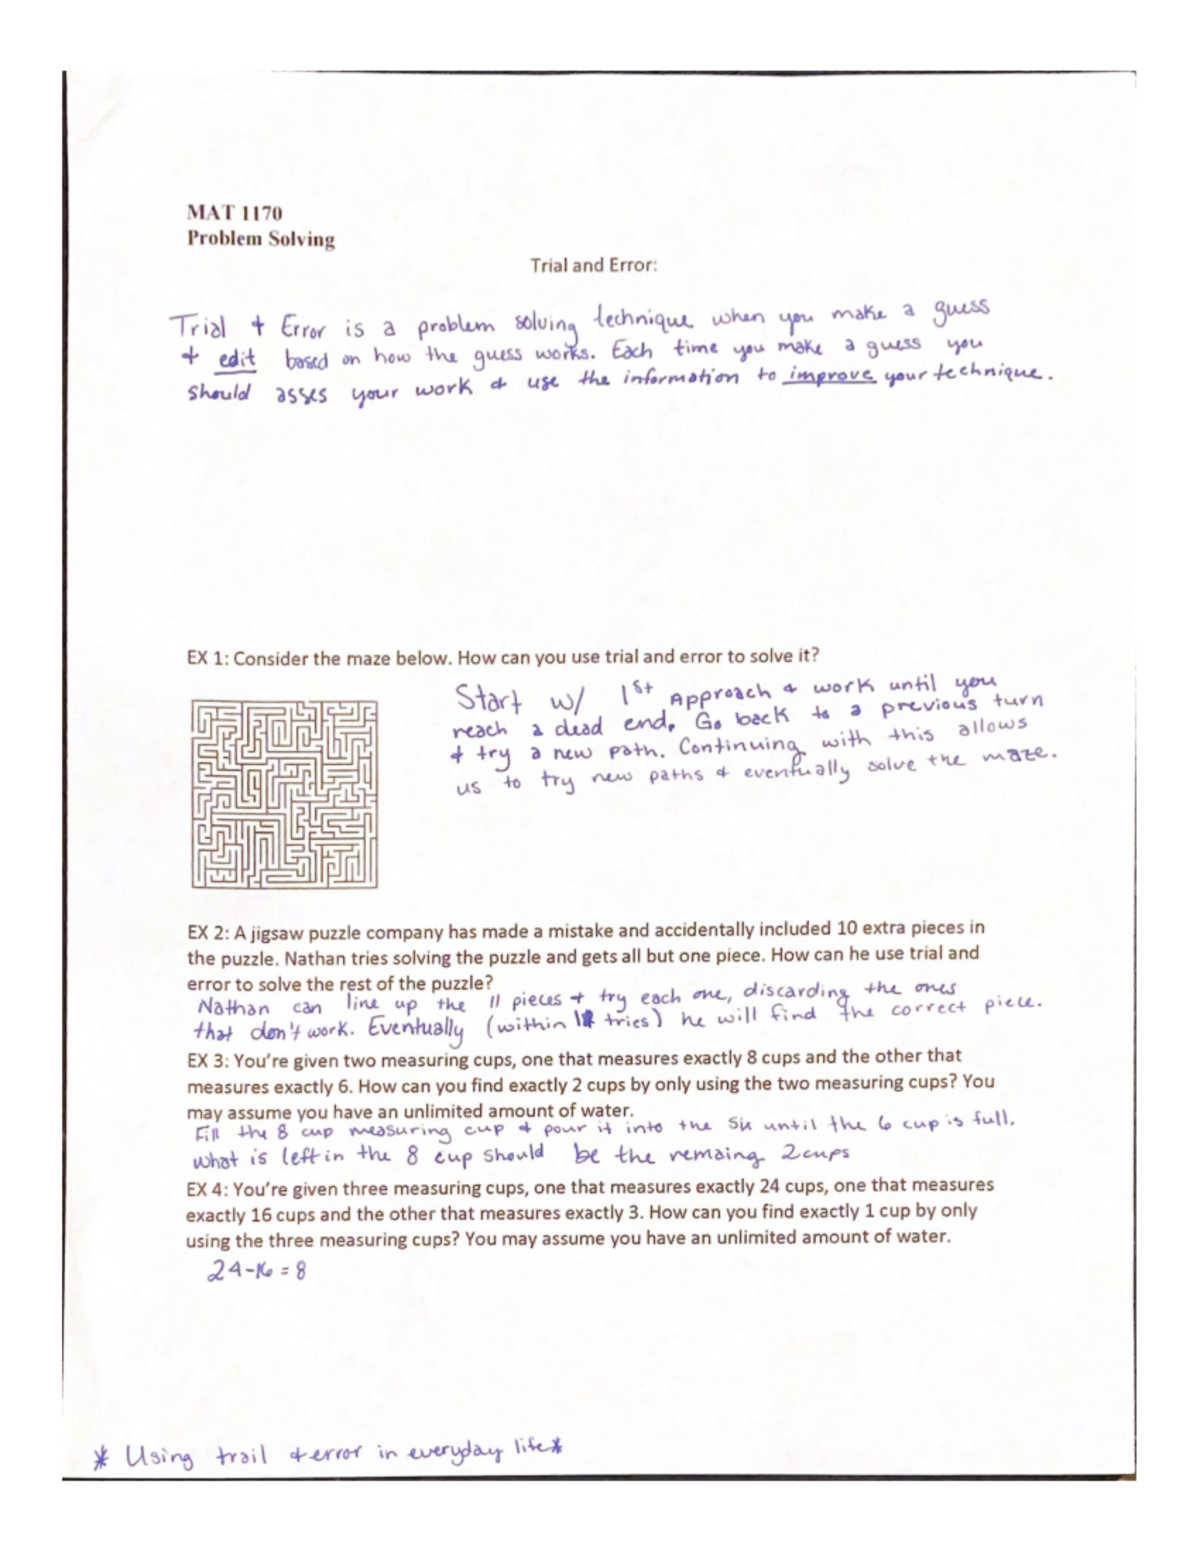 MAT 1170
Problem Solving
Trial and Error:
Trial + Error is a problem solving technique when you make a guess
+ edit based on how the guess works. Each time you make a guess you
should asses your work & use the information to improve your technique.
EX 1: Consider the maze below. How can you use trial and error to solve it?
Start w/ 1st Approach & work until you
reach a dead end. Go back to a previous turn
& try a new path. Continuing with this allows
us to try new paths & eventually solve the maze.
EX 2: A jigsaw puzzle company has made a mistake and accidentally included 10 extra pieces in
the puzzle. Nathan tries solving the puzzle and gets all but one piece. How can he use trial and
error to solve the rest of the puzzle?
Nathan can line up the 11 pieces + try each one, discarding the ones
that don't work. Eventually (within tries) he will find the correct piece.
EX 3: You're given two measuring cups, one that measures exactly 8 cups and the other that
measures exactly 6. How can you find exactly 2 cups by only using the two measuring cups? You
may assume you have an unlimited amount of water.
Fill the 8 cup measuring cup & pour it into the six until the 6 cup is full.
what is left in the 8 cup should be the remaing 2 cups
EX 4: You're given three measuring cups, one that measures exactly 24 cups, one that measures
exactly 16 cups and the other that measures exactly 3. How can you find exactly 1 cup by only
using the three measuring cups? You may assume you have an unlimited amount of water.
24-16 = 8
* Using trail & error in everyday life *